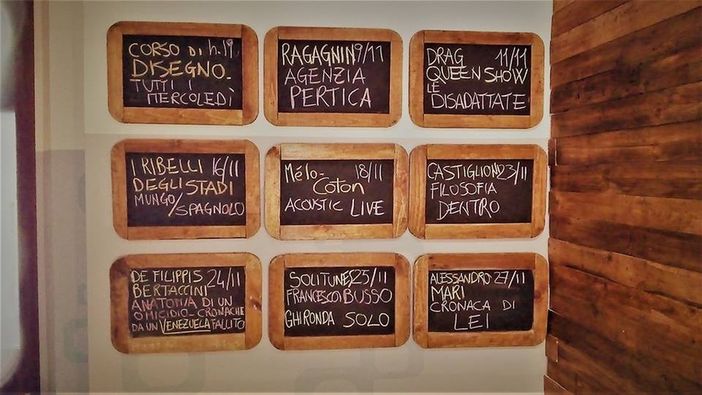 CORSO DI h.19
DISEGNO.
TUTTI I
MERCOLEDÌ
RAGAGNIN 9/11
AGENZIA
PERTICA
DRAG 11/11
QUEEN SHOW
LE
DISADATTATE
I RIBELLI 16/11
DEGLI STADI
MUNGO/
SPAGNOLO
Mélo- 18/11
Coton
ACOUSTIC LIVE
CASTIGLIONI 23/11
FILOSOFIA
DENTRO
DE FILIPPIS 24/11
BERTACCINI
ANATOMIA DI UN
OMICIDIO-CRONACHE
DA UN VENEZUELA FALLITO
SOLITUNES 25/11
FRANCESCO BUSSO
GHIRONDA SOLO
ALESSANDRO 27/11
MARI
CRONACA DI
LEI